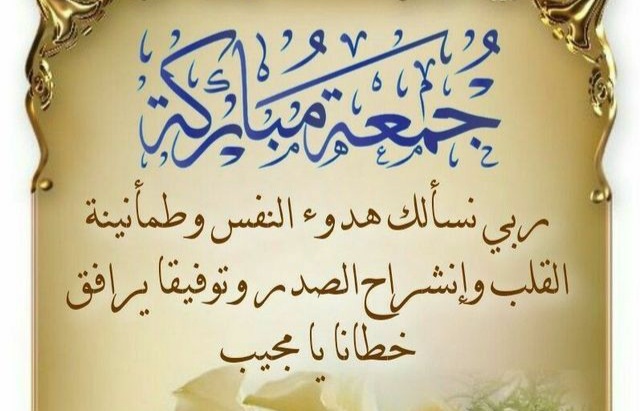 جُمعة مُباركة
ربي نسألك هدوء النفس وطمأنينة
القلب وإنشراح الصدر وتوفيقا يرافق
خطانا يا مجيب